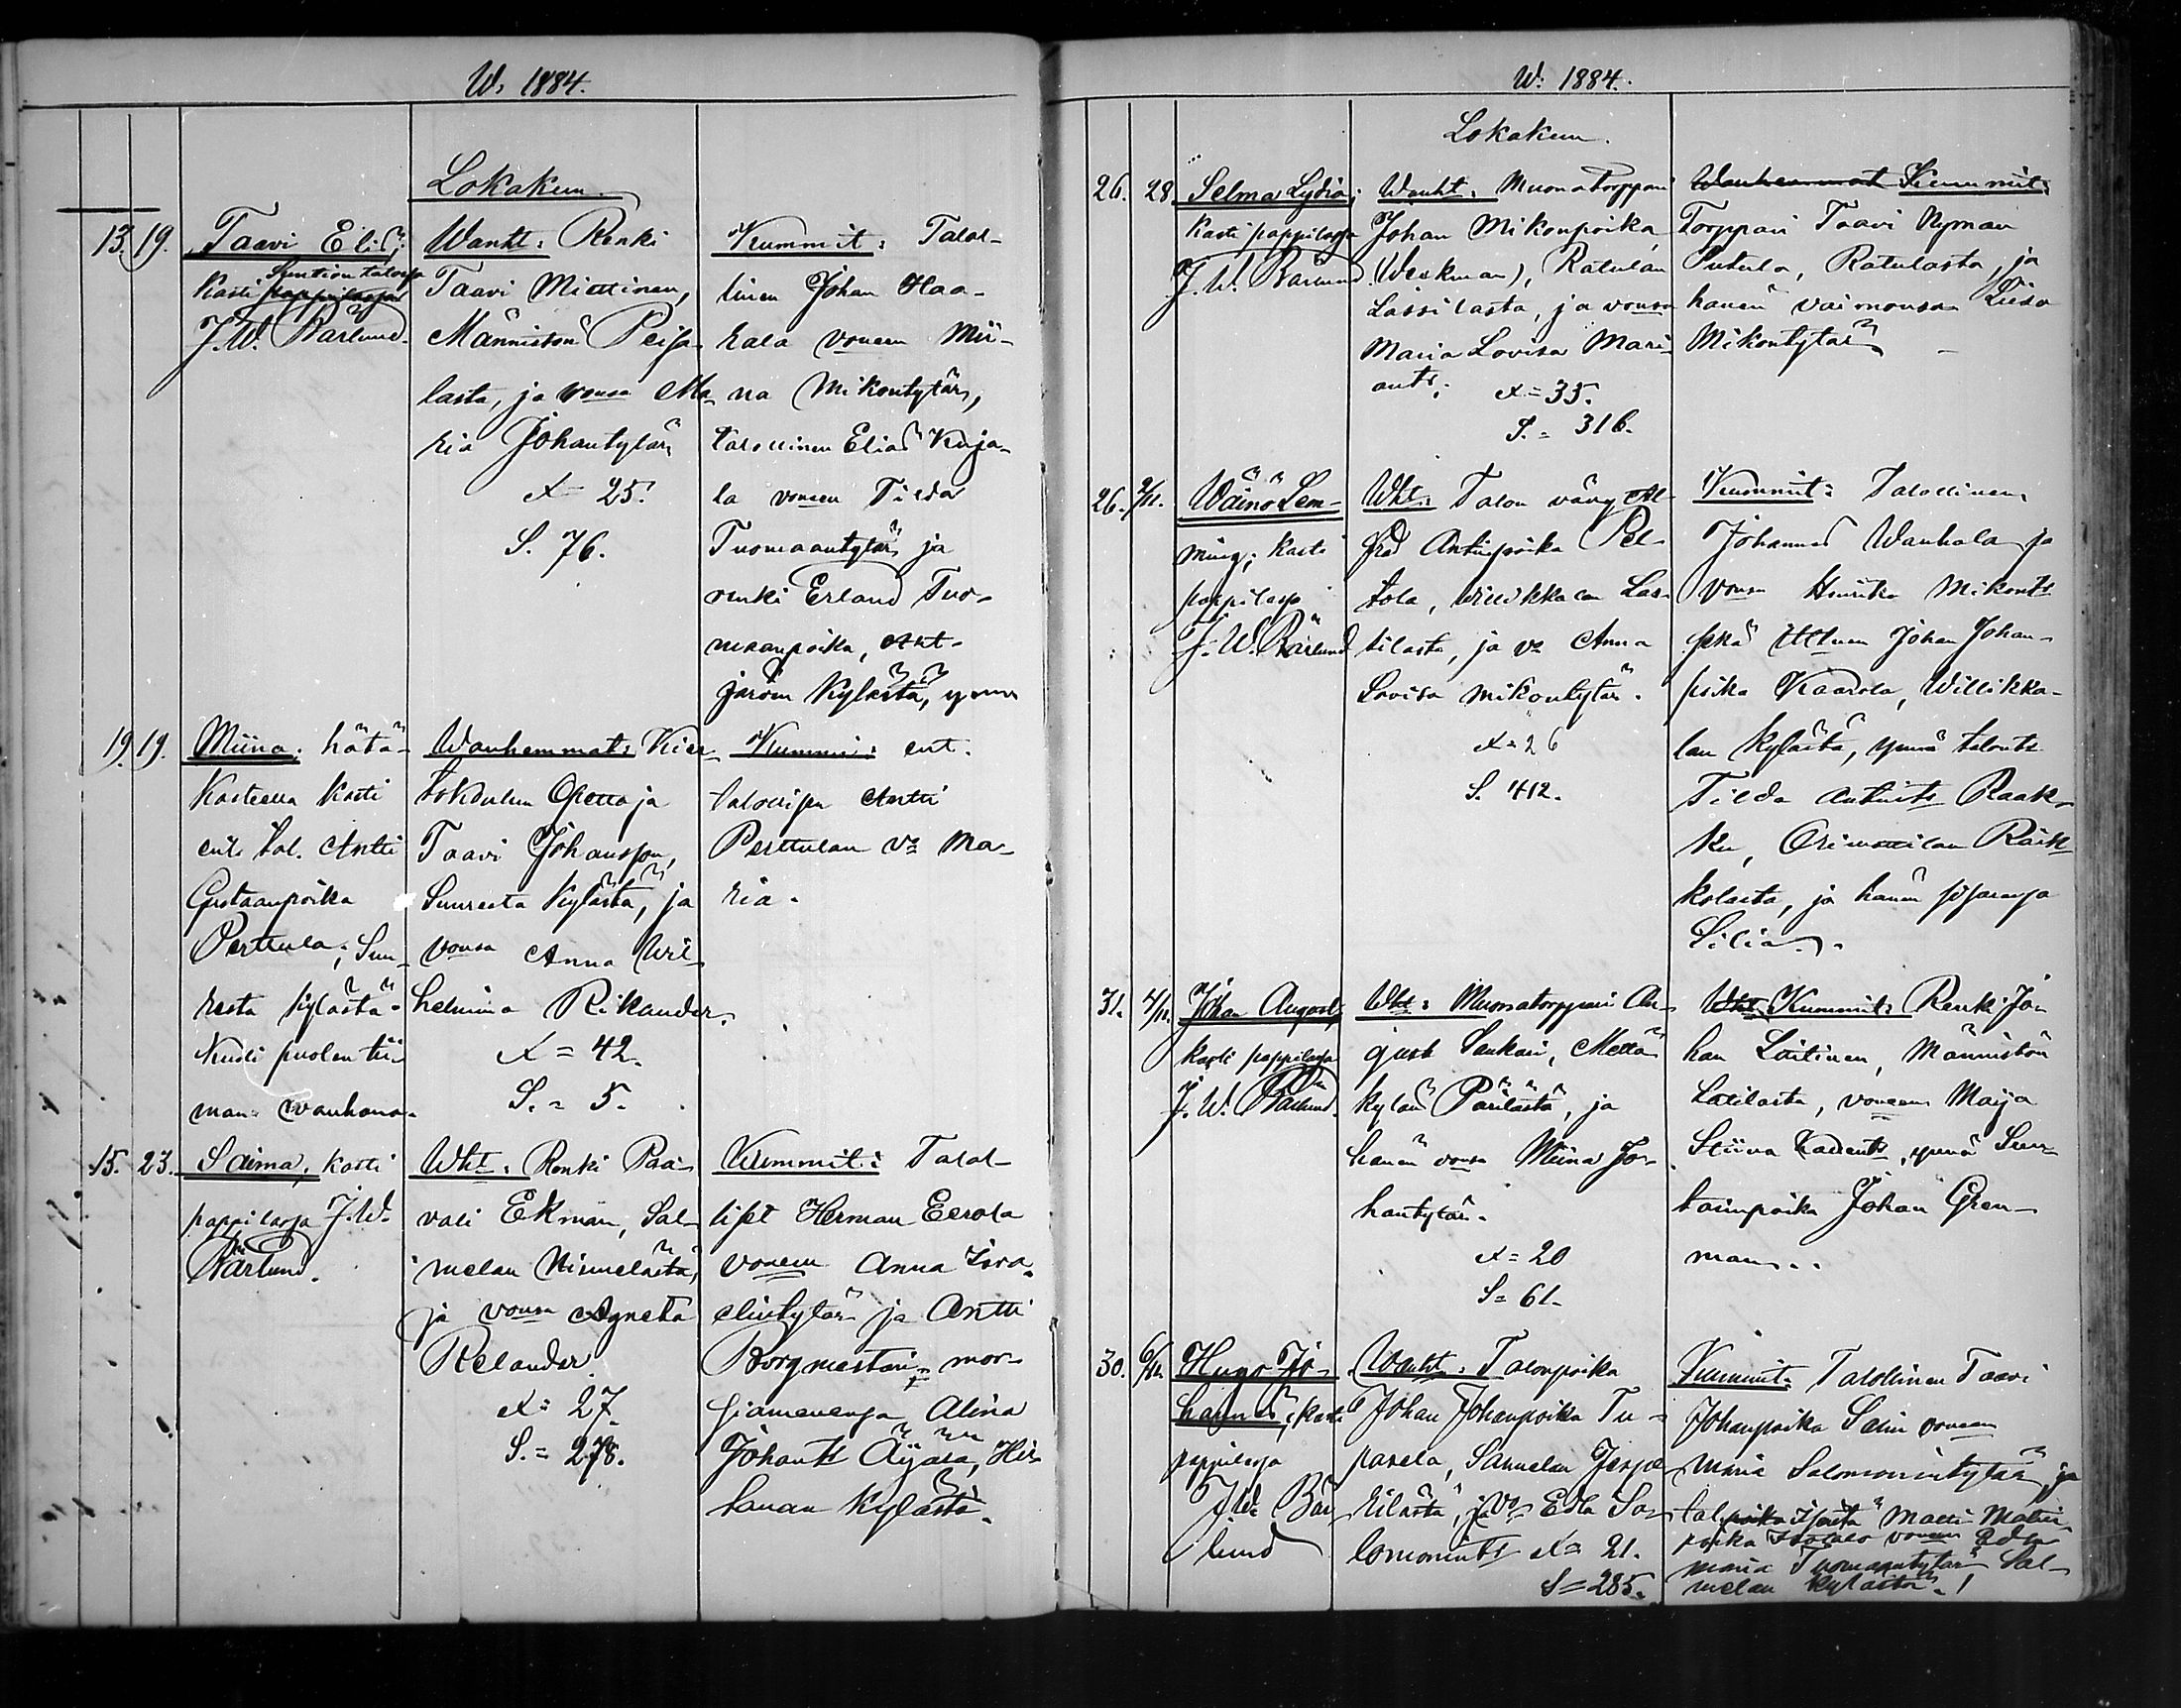 W. 1884.
Lokakuu.
13. 19.
Taavi Elis;
Suntion talossa
Kasti pappilassa
J. W. Bärlund.
Wanht: Renki
Taavi Miettinen,
Männistön Peija-
lasta, ja vonsa Ma-
ria Johantytär
Ä 25.
S. 76.
Kummit: Talol-
linen Johan Haa-
kala voneen Mii-
na Mikontytär,
talollinen Elias Kuja-
la voneen Tilda
Tuomaantytär ja
renki Erland Tuo-
maanpoika,
kylästä, ynnä
19. 19.
Miina: hätä-
kasteella kasti
ent. tal. Antti
Gustaanpoika
Perttula, Suu-
resta kylästä.
Kuoli puolen tii-
man vanhana.
Wanhemmat: Kier-
tokoulun Opettaja
Taavi Johansson,
Suuresta Kylästä, ja
vonsa Anna Wil-
helmina Rikander.
Ä = 42.
S. = 5.
Kummi: ent.
talollisen Antti
Perttulan vo Ma-
ria.
15. 23.
Saima, kasti
pappilassa J. W.
Bärlund.
Wht: Renki Paa-
vali Ekman, Sal-
melan Nimelästä,
ja vonsa Agneta
Relander.
Ä = 27.
S. = 278.
Kummit: Talol-
liset Herman Eerola
voneen Anna Isra-
elintytär ja Antti
Borgmestari mor-
siamenensa Alina
Johant Äijälä,
kylästä.
W. 1884.
Lokakuu.
26. 28.
Selma Lydia;
Kasti pappilassa
J. W. Bärlund.
Wanht: Muonatorppari
Johan Mikonpoika
(Weckman), Ratulan
Lassilasta, ja vonsa
Maria Lovisa Mari-
ants.
Ä = 35.
S. = 316.
Wanhemmat Kummit:
Torppari Taavi Nyman
Putula, Ratulasta, ja
hänen vaimonsa Liisa
Mikontytär
26. 2/11.
Wäinö Lem-
ming; kasti
pappilassa
J. W. Bärlund
Wht: Talon vävy Al-
fred Antinpoika Pel-
tola, Willikkalan Las-
silasta, ja vo Anna
Lovisa Mikontytär.
Ä = 26
S. 412.
Kummit: Talollinen
Johannes Wanhala ja
vonsa Henrika Mikonts
sekä Johan Johan-
poika Kaarola, Willikka-
lan kylästä, ynnä talonts
Tilda Antints Raak-
ku, Orimattilan Räik-
kolasta, ja hänen sisarensa
Lilia.
31. 4/11.
Johan August,
kasti pappilassa
J. W. Bärlund.
Wht: Muonatorppari Au-
gust Saukari, Mettä-
kylän Pärilästä, ja
hänen vonsa Miina Jo-
hantytär.
Ä = 20
S = 61.
Wht Kummit: Renki Jo-
han Laitinen, Männistön
Laitilasta, voneen Maija
Stiina, ynnä Suu-
tarinpoika Johan Gren-
man.
30. 6/11.
Hugo Jo-
hannes, kasti
pappilassa
J. W. Bär-
lund
Wanht: Talonpoika
Johan Johanpoika Tu-
pasela, Sannulan Jesper-
kilästä, ja vo Edla Sa-
lomonints Ä = 21.
S = 285.
Kummit: Talollinen Taavi
Johanpoika Salin voneen
Maria Salomonintytär, ja
tal. Matti Matin-
poika voneen Edla
Maria Tuomaantytär Sal-
melan kylästä.